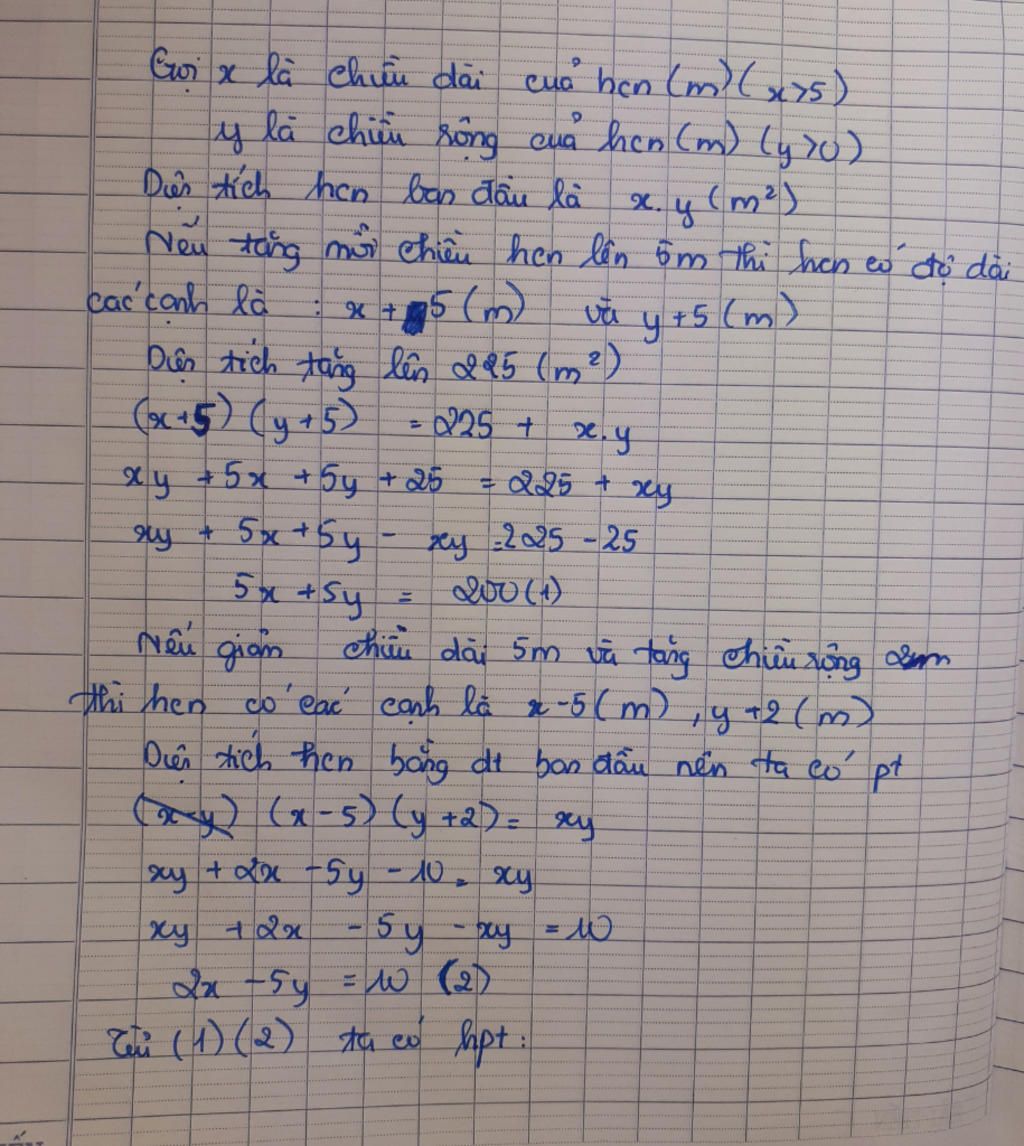 Gọi x là chiều dài củả hcn (m) (x>5)
y là chiều rộng củả hcn (m) (y>0)
Diện tích hcn ban đầu là x.y (m²)
Nếu tăng mỗi chiều hcn lên 5m thì hcn có độ dài
các cạnh là : x + 5 (m) và y+5 (m)
Diện tích tăng lên 225 (m²)
(x+5) (y+5) = 225 + x.y
xy + 5x + 5y + 25 = 225 + xy
xy + 5x + 5y - xy = 225 - 25
5x + 5y = 200 (1)
Nếu giảm chiều dài 5m và tăng chiều rộng 2m
thì hcn có các cạnh là x-5 (m), y+2 (m)
Diện tích hcn bằng dt ban đầu nên ta có pt
(x-y) (x-5) (y+2) = xy
xy + 2x - 5y - 10 = xy
xy + 2x - 5y - xy = 10
2x - 5y = 10 (2)
Từ (1) (2) ta có hpt :